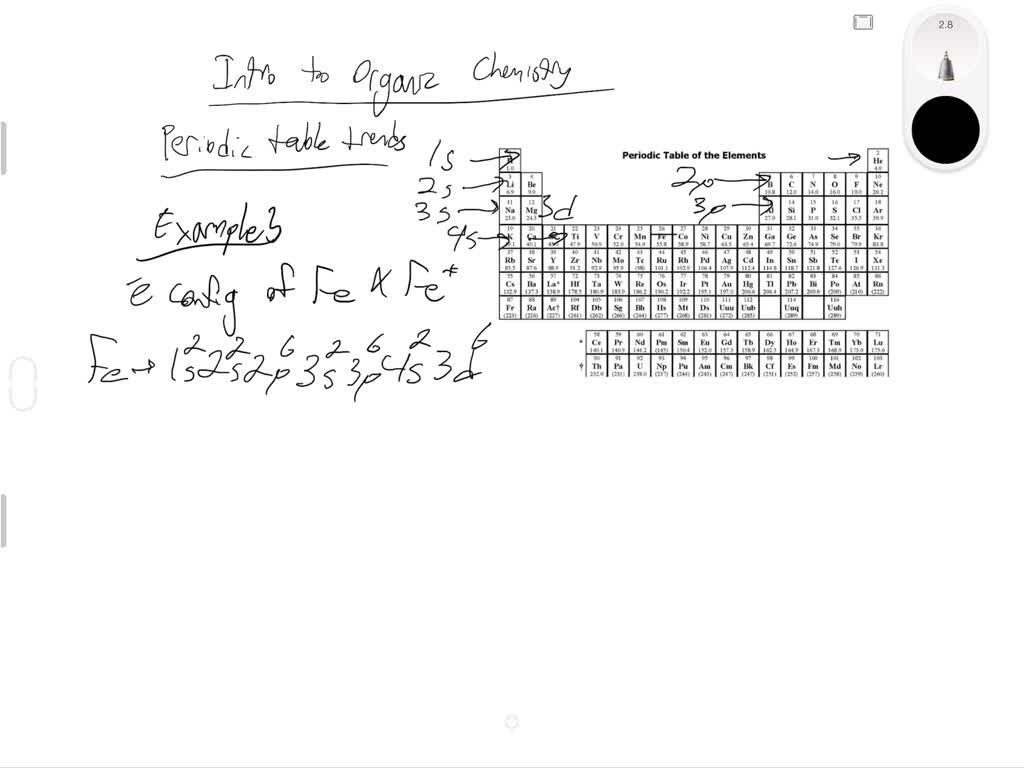 2.8
Intro to Organic Chemistry
Periodic table trends
Periodic Table of the Elements
1s
2s
3s
4s
3d
2p
3p
Example 3
e config of Fe & Fe⁺
Fe → 1s² 2s² 2p⁶ 3s² 3p⁶ 4s² 3d⁶
2 He 4.0
Li 6.9 4 Be 9.0 B 10.8 6 C 12.0 7 N 14.0 8 O 16.0 9 F 19.0 10 Ne 20.2
11 Na 23.0 12 Mg 24.3 14 Si 28.1 15 P 31.0 16 S 32.1 17 Cl 35.5 18 Ar 39.9
22 Ti 47.9 23 V 50.9 24 Cr 52.0 25 Mn 54.9 26 Fe 55.8 27 Co 58.9 28 Ni 58.7 29 Cu 63.5 30 Zn 65.4 31 Ga 69.7 32 Ge 72.6 33 As 74.9 34 Se 79.0 35 Br 79.9 36 Kr 83.8
37 Rb 85.5 38 Sr 87.6 39 Y 88.9 40 Zr 91.2 41 Nb 92.9 42 Mo 95.9 43 Tc (98) 44 Ru 101.1 45 Rh 102.9 46 Pd 106.4 47 Ag 107.9 48 Cd 112.4 49 In 114.8 50 Sn 118.7 51 Sb 121.8 52 Te 127.6 53 I 126.9 54 Xe 131.3
55 Cs 132.9 56 Ba 137.3 57 La* 138.9 72 Hf 178.5 73 Ta 180.9 74 W 183.9 75 Re 186.2 76 Os 190.2 77 Ir 192.2 78 Pt 195.1 79 Au 197.0 80 Hg 200.6 81 Tl 204.4 82 Pb 207.2 83 Bi 209.0 84 Po (209) 85 At (210) 86 Rn (222)
87 Fr (223) 88 Ra (226) 89 Ac† (227) 104 Rf (261) 105 Db (262) 106 Sg (266) 107 Bh (264) 108 Hs (277) 109 Mt (268) 110 Ds (281) 111 Uuu (272) 112 Uub (285) 114 Uuq (289) 116 Uuh (289)
* 58 Ce 140.1 59 Pr 140.9 60 Nd 144.2 61 Pm (145) 62 Sm 150.4 63 Eu 152.0 64 Gd 157.3 65 Tb 158.9 66 Dy 162.5 67 Ho 164.9 68 Er 167.3 69 Tm 168.9 70 Yb 173.0 71 Lu 175.0
† 90 Th 232.0 91 Pa (231) 92 U 238.0 93 Np (237) 94 Pu (244) 95 Am (243) 96 Cm (247) 97 Bk (247) 98 Cf (251) 99 Es (252) 100 Fm (257) 101 Md (258) 102 No (259) 103 Lr (260)